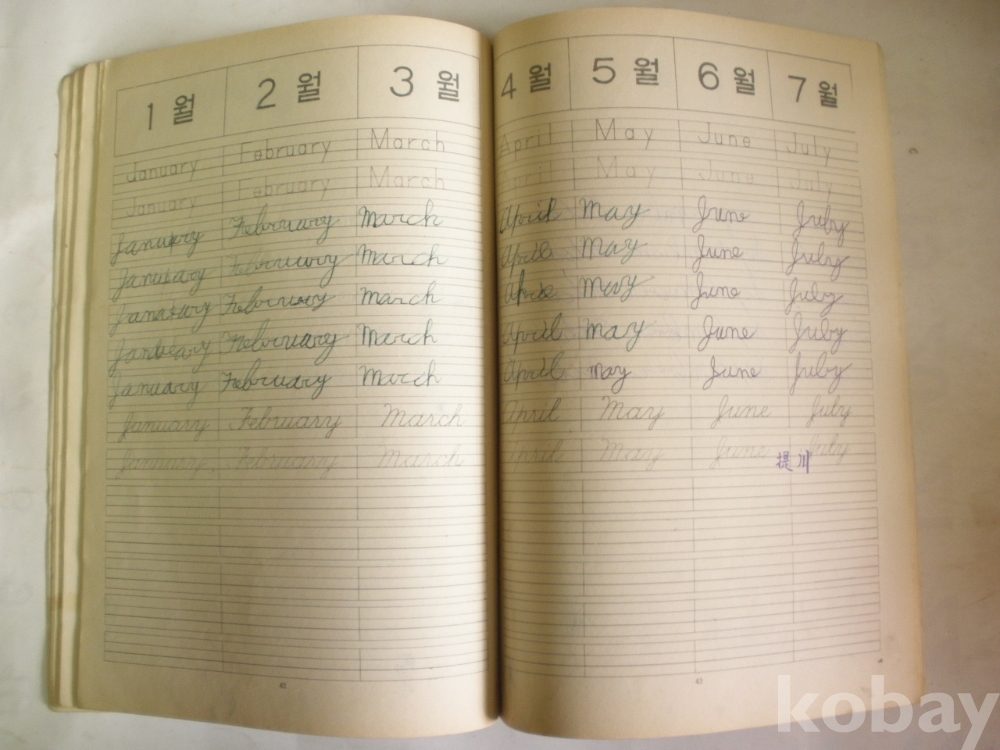 1월 2월 3월 4월 5월 6월 7월
January February March April May June July
January February March April May June July
January February March April May June July
January February March April May June July
January February March April May June July
January February March April May June July
January February March April May June July
January February March April May June July
January February March April May June July
提川
kobay